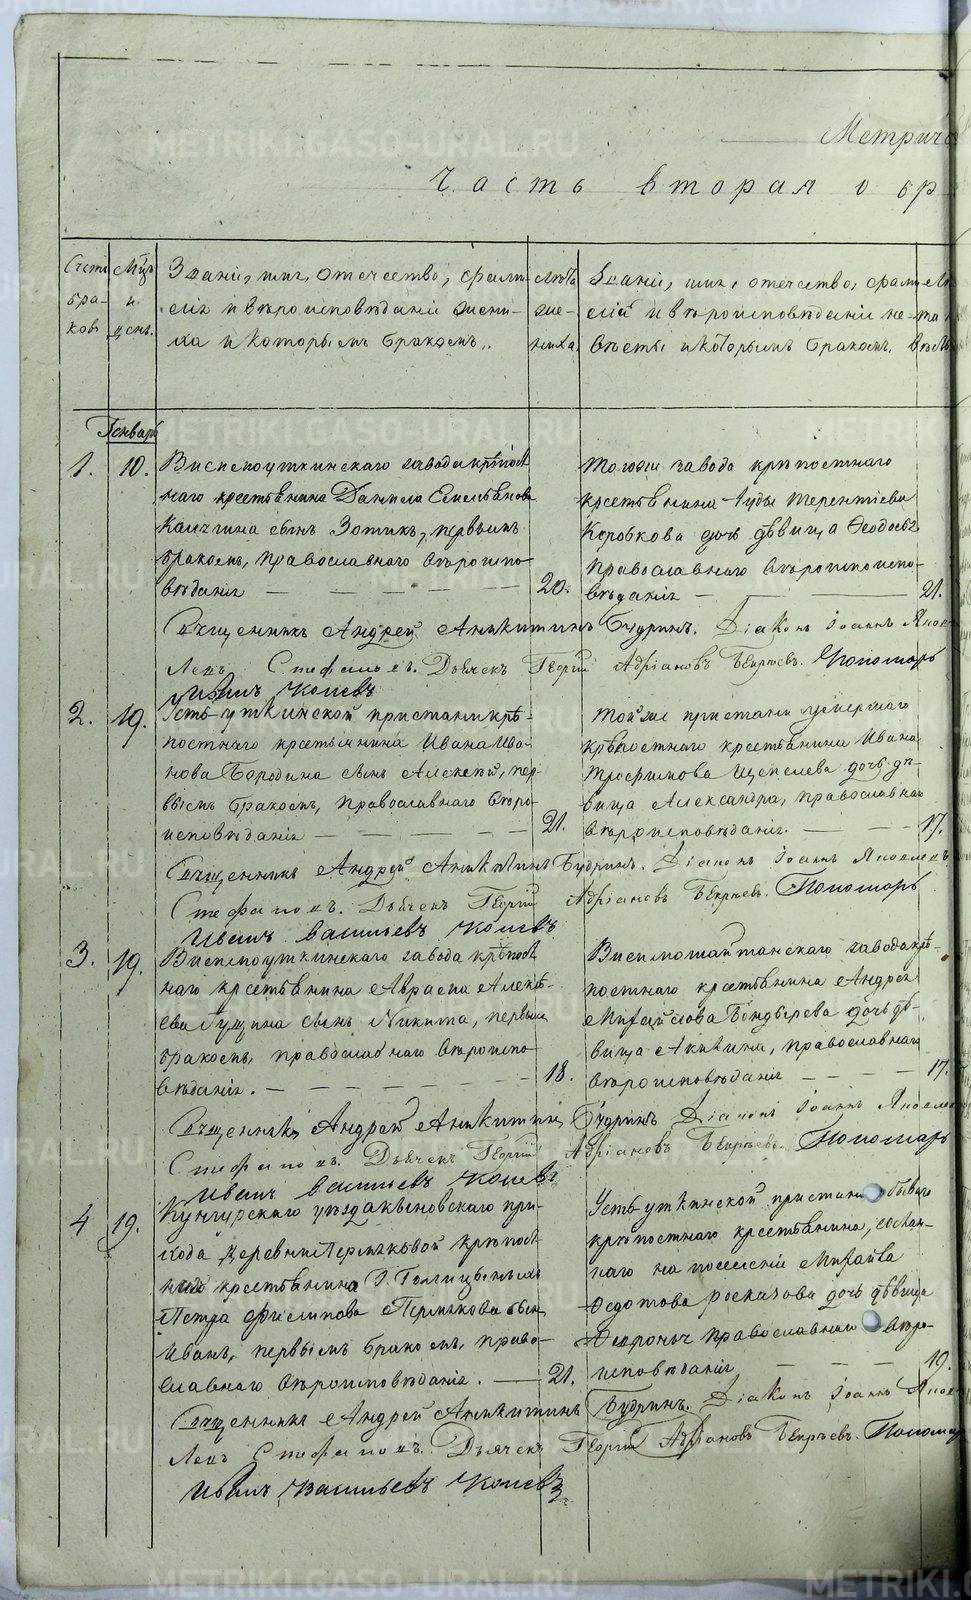 Метриче
Часть вторая о бр
Счетъ бра- ковъ
Мѣць и день.
Званіе, имя, отечество, фами-
лія и вѣроисповѣданіе жени-
ха и которымъ бракомъ.
Лѣта же- ниха.
Званіе, имя, отечество, фами-
лія и вѣроисповѣданіе не-
вѣсты и которымъ бракомъ.
Генварь
1. 10. Висимоуткинскаго завода крѣпост
наго крестьянина Данила Емельянова
сынъ Зотикъ, первымъ
бракомъ, православнаго вѣроиспо-
вѣданія 20.
тогоже завода крѣпостнаго
крестьянина Іуды Терентіева
Коробкова дочь дѣвица Ѳеодосья
православнаго вѣроисповѣ-
вѣданія 21.
Священникъ Андрей Аникитинъ Будринъ. Діаконъ Іоаннъ Яков
левъ Стефановъ. Дьячекъ Георгій Адріановъ Пономарь
Иванъ Копевъ
2. 19. Усть-уткинской пристани крѣ-
постнаго крестьянина Ивана Ива-
нова Бородина сынъ Алексѣй, пер-
вымъ бракомъ, православнаго вѣро-
исповѣданія 21.
Той же пристани умершаго
крѣпостнаго крестьянина Ивана
Трофимова Щепелева дочь дѣ-
вица Александра, православнаго
вѣроисповѣданія. 17.
Священникъ Андрей Аникитинъ Будринъ. Діаконъ Іоаннъ Яковлевъ
Стефановъ. Дьячекъ Георгій Адріановъ Пономарь
Иванъ Васильевъ Копевъ
3. 19. Висимоуткинскаго завода крѣпост
наго крестьянина Аврама Алексѣ-
ева Гущина сынъ Никита, первымъ
бракомъ, православнаго вѣроиспо-
вѣданія. 18.
Висимошайтанскаго завода крѣ-
постнаго крестьянина Андрея
Михайлова Бондырева дочь дѣ-
вица Акилина, православнаго
вѣроисповѣданія 17.
Священникъ Андрей Аникитинъ Будринъ Діаконъ Іоаннъ Яковлевъ
Стефановъ. Дьячекъ Георгій Адріановъ Пономарь
Иванъ Васильевъ Копевъ
4 19. Кунгурскаго уѣзда Акъновскаго при-
хода деревни Пермяковой крѣпост
крестьянина Г. Голицыныхъ
Петра Филипова Пермякова сынъ
Иванъ, первымъ бракомъ, право-
славнаго вѣроисповѣданія. 21.
Усть уткинской пристани бывшаго
крѣпостнаго крестьянина, сослан-
наго на поселеніе Михайла
Ѳедотова дочь дѣвица
православнаго вѣро-
исповѣданія 19.
Священникъ Андрей Аникитинъ Будринъ. Діаконъ Іоаннъ Яков
левъ Стефановъ. Дьячекъ Георгій Адріановъ Пономар
Иванъ Васильевъ Копевъ
METRIKI.GASO-URAL.RU